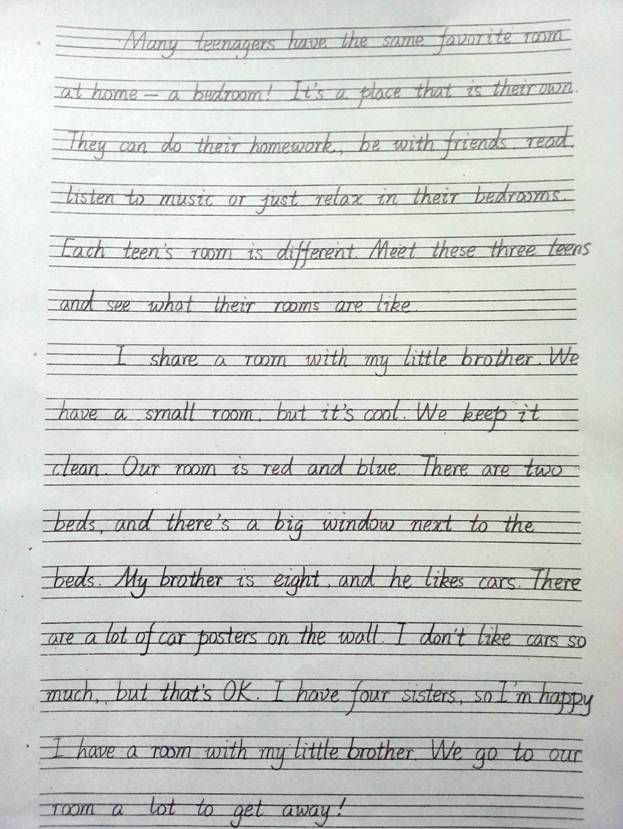 Many teenagers have the same favorite room
at home — a bedroom! It's a place that is their own.
They can do their homework, be with friends, read,
listen to music or just relax in their bedrooms.
Each teen's room is different. Meet these three teens
and see what their rooms are like.
I share a room with my little brother. We
have a small room, but it's cool. We keep it
clean. Our room is red and blue. There are two
beds, and there's a big window next to the
beds. My brother is eight, and he likes cars. There
are a lot of car posters on the wall. I don't like cars so
much, but that's OK. I have four sisters, so I'm happy
I have a room with my little brother. We go to our
room a lot to get away!